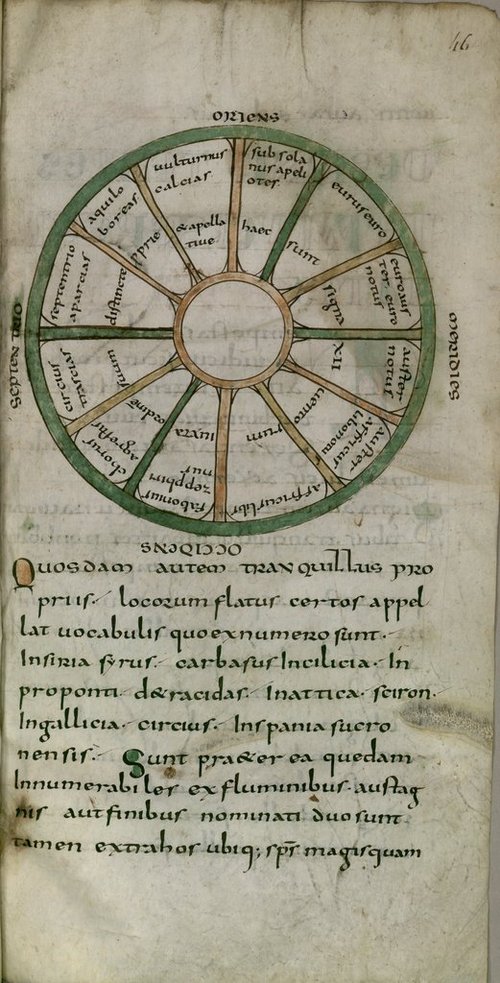 46
ORIENS
vulturnus
calcias
subsola
nus apeli
otes
eurus euro
euro aus
ter. euro
notus
auster
notus
auster
affricus
libonotu
affricus libs
fabonius
zepphiri
nus
chorus
agestes
circius
trascias
septentrio
aparcias
aquilo
boreas
haec
sunt
signa
XII
vento
rum
iuxta
ordine
suum
distincte
pprie
& apella
tiue
SEPTENTRIO
MERIDIES
OCCIDENS
Quosdam autem tranquillus pro
priis locorum flatus certos appel
lat uocabulis quo ex numero sunt.
In siria syrus. carbasus In cilicia. In
proponti. d& racidas. In attica. sciron.
In gallicia. circius. In spania sucro
nensis. Sunt pra&er ea quedam
Innumerabiles ex fluminibus. aut stag
nis aut finibus nominati duo sunt.
tamen extra hos ubiq; sps magis quam